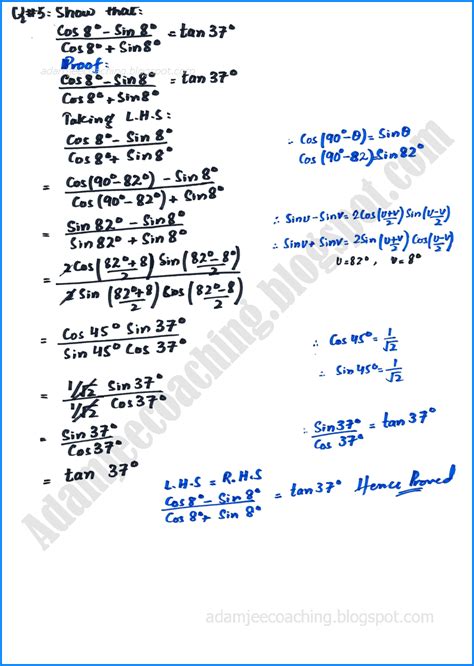 Q#5: Show that:
Cos 8° - Sin 8° / Cos 8° + Sin 8° = tan 37°
adamjeecoaching.blogspot.com
Proof:
Cos 8° - Sin 8° / Cos 8° + Sin 8° = tan 37°
Taking L.H.S:
Cos 8° - Sin 8° / Cos 8° + Sin 8° ∴ Cos(90°-θ) = Sinθ
Cos(90°-82) Sin 82°
= Cos(90°-82°) - Sin 8° / Cos(90°-82°) + Sin 8°
= Sin 82° - Sin 8° / Sin 82° + Sin 8° ∴ Sinu - Sinv = 2Cos(u+v/2) Sin(u-v/2)
∴ Sinu + Sinv = 2Sin(u+v/2) Cos(u-v/2)
u=82°, v=8°
= 2Cos(82°+8/2) Sin(82°-8/2) / 2Sin(82°+8/2) Cos(82°-8/2)
= Cos 45° Sin 37° / Sin 45° Cos 37° ∴ Cos 45° = 1/√2
∴ Sin 45° = 1/√2
= 1/√2 Sin 37° / 1/√2 Cos 37°
= Sin 37° / Cos 37° ∴ Sin 37° / Cos 37° = tan 37°
= tan 37°
L.H.S = R.H.S
Cos 8° - Sin 8° / Cos 8° + Sin 8° = tan 37° Hence Proved
Adamjeecoaching.blogspot.com
adamjeecoaching.blogspot.com